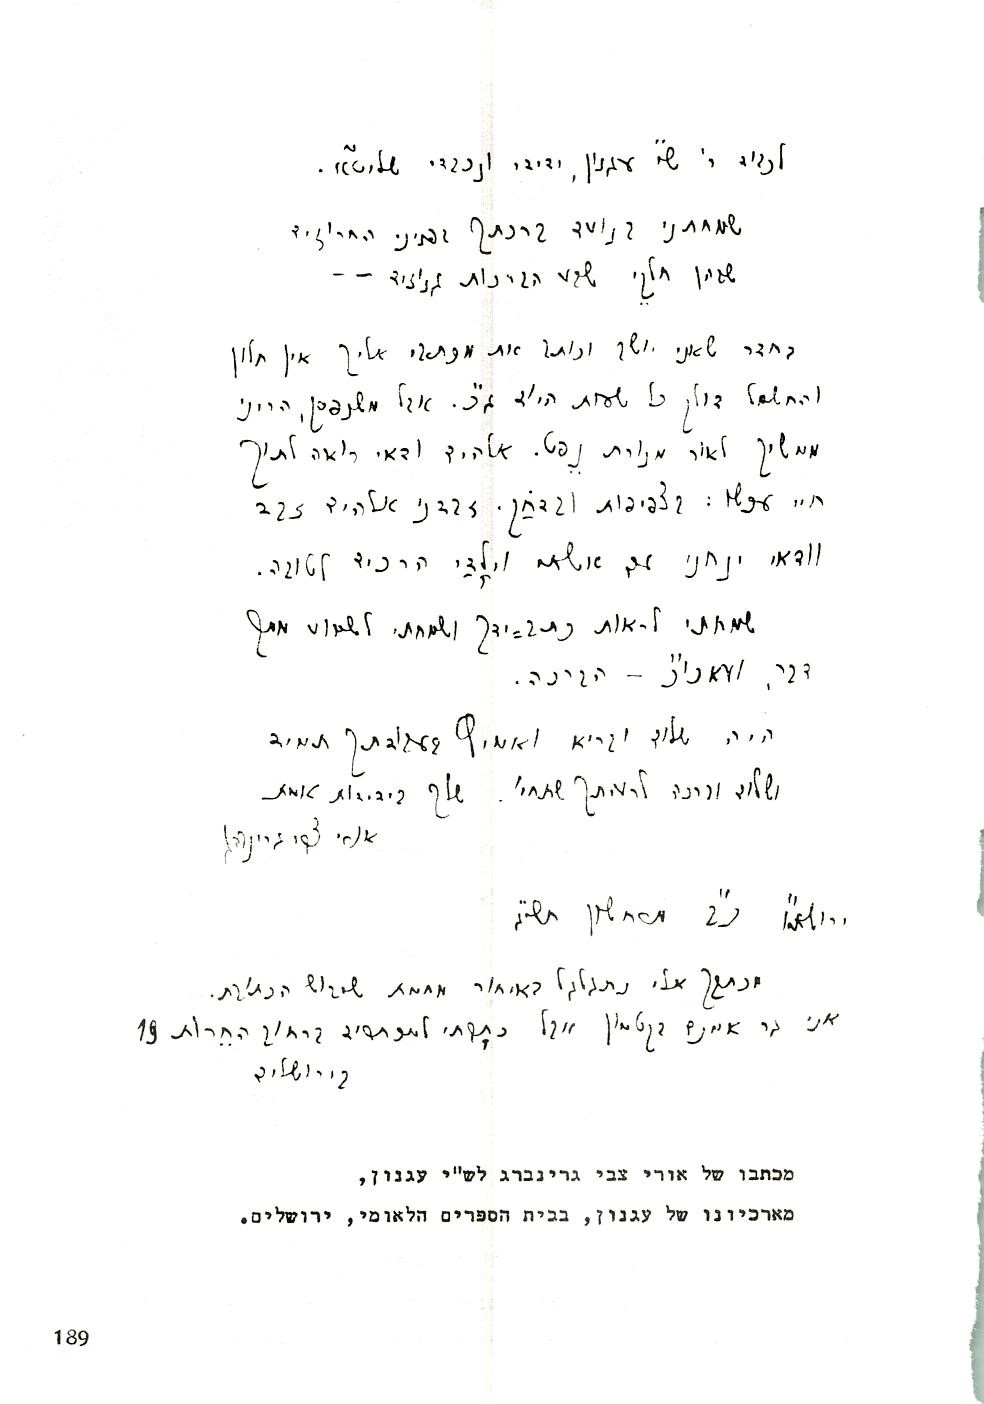 לכבוד ר' ש"י עגנון, ידידי ונכבדי שליט"א.
שמחתני בנועם ברכתך בפניני החרוזים
שבהן חלקי שבע הברכות גנוזים --
בחדר שאני יושב וכותב את מכתבי אליך אין חלון
והחשמל דולק כל שעות היום ג"כ. אבל משנפסק, הריני
ממשיך לאור מנורת נפט. אלהים ודאי רואה לתוך
חיי עכשו: בצפיפות ובדחק. זבדני אלהים זבד
וודאי ינחני עם אשתי וילדי הרכים לטובה.
שמחתי לראות כתב=ידך ושמחתי לשמוע ממך
דבר, ועאכו"כ – הברכה.
היה שלום ובריא ואמיץ בעבודתך תמיד
ושלום וברכה לרעיתך שתחי'. שלך בידידות אמת
אורי צבי גרינברג
ירושלם כ"ב מרחשון תשי"ג
מכתבך אלי נתגלגל באיחור מחמת שיבוש הכתובת.
אני גר אמנם בקטמון אבל כתבתי למכתבים ברחוב החרות 19
בירושלים
מכתבו של אורי צבי גרינברג לש"י עגנון,
מארכיונו של עגנון, בבית הספרים הלאומי, ירושלים.
189